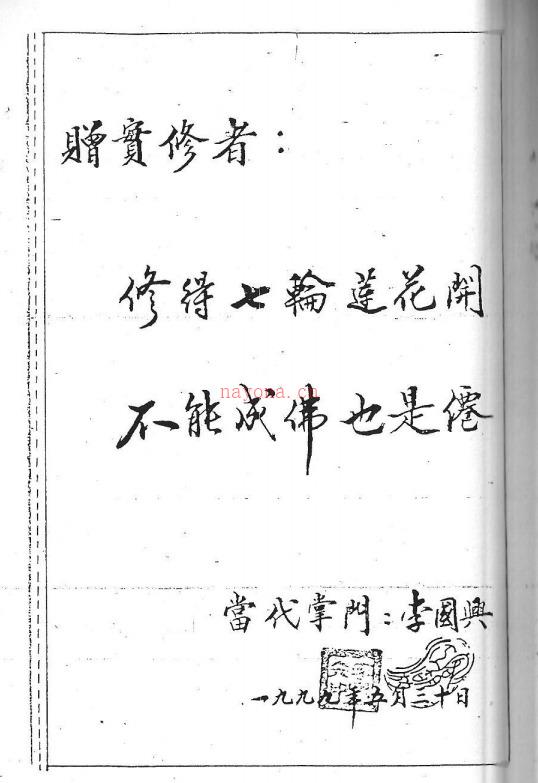 贈實修者：
修得七輪蓮花開
nayona.cn
不能成佛也是僊
當代掌門：李國興
一九九九年五月三十日